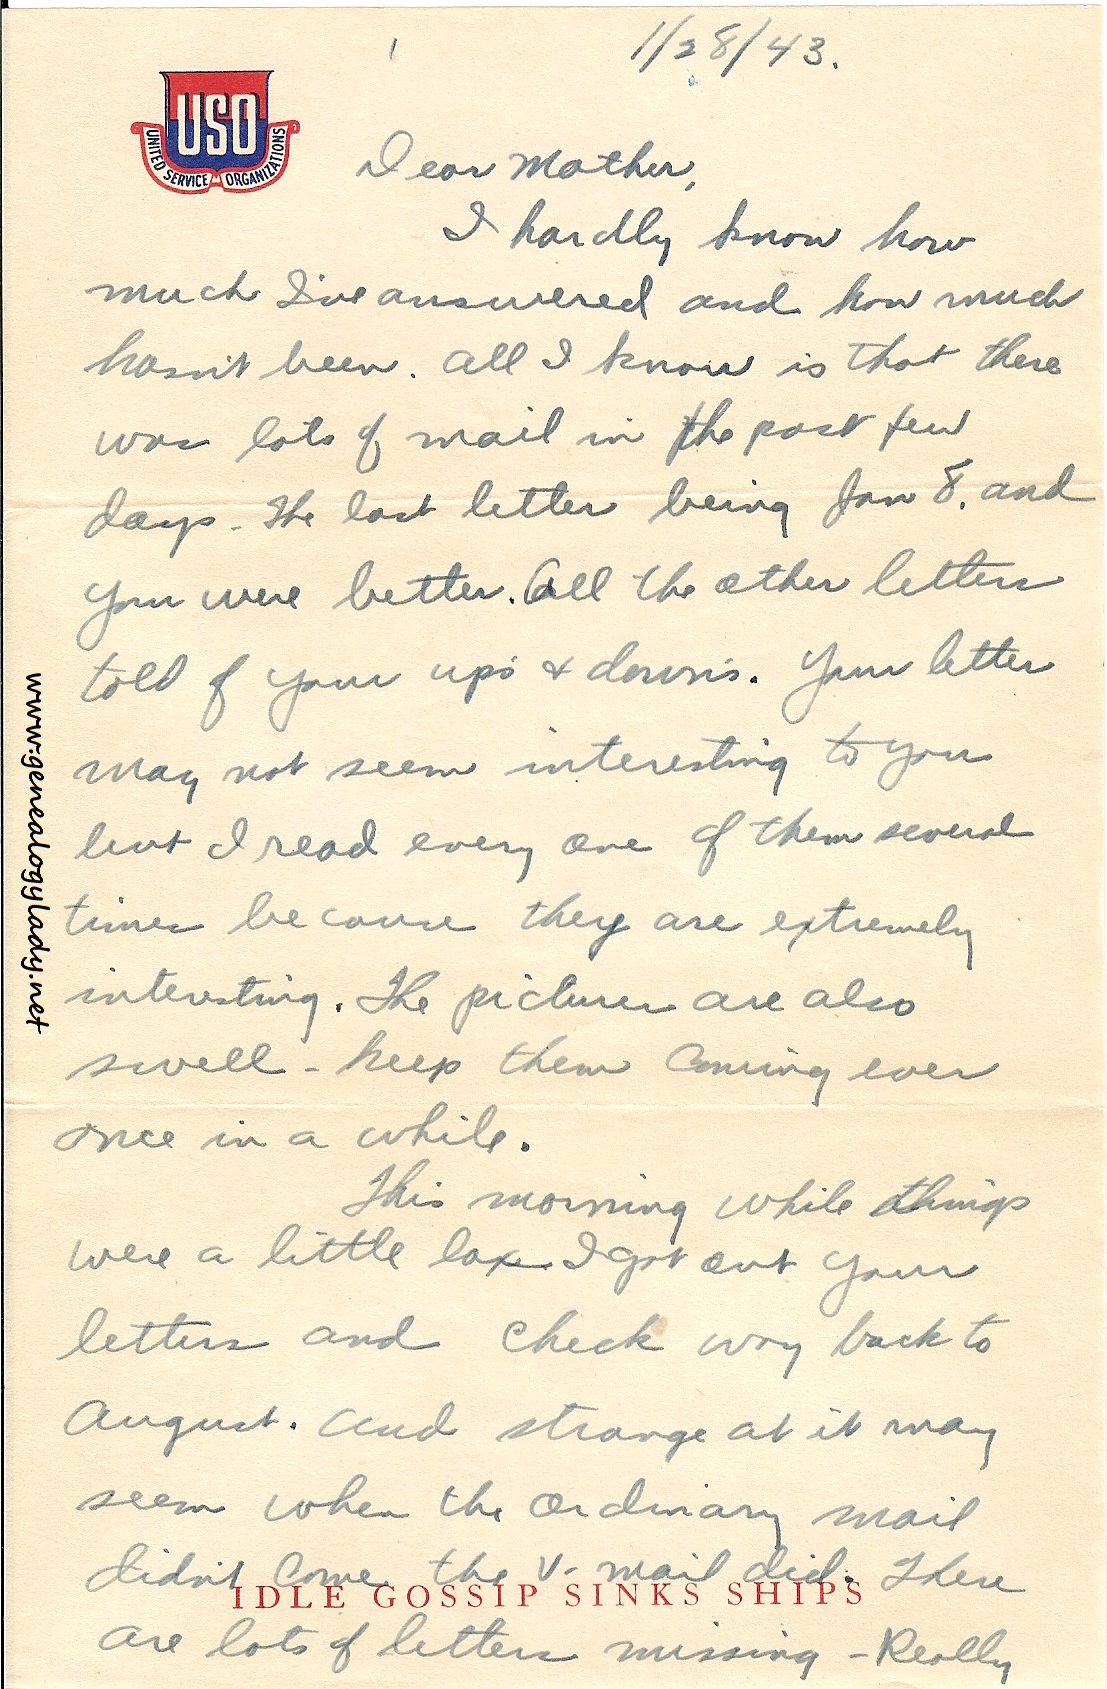 1
1/28/43.
USO
UNITED SERVICE ORGANIZATIONS
Dear Mother,
I hardly know how
much I've answered and how much
hasn't been. All I know is that there
was lots of mail in the past few
days - The last letter being Jan 8. and
you were better. All the other letters
told of your ups & downs. Your letter
may not seem interesting to you
but I read every one of them several
times because they are extremely
interesting. The pictures are also
swell - keep them coming ever
once in a while.
This morning while things
were a little lax I got out your
letters and check way back to
August. And strange at it may
seem when the ordinary mail
didn't come the V-mail did. There
IDLE GOSSIP SINKS SHIPS
are lots of letters missing - Really
www.genealogylady.net